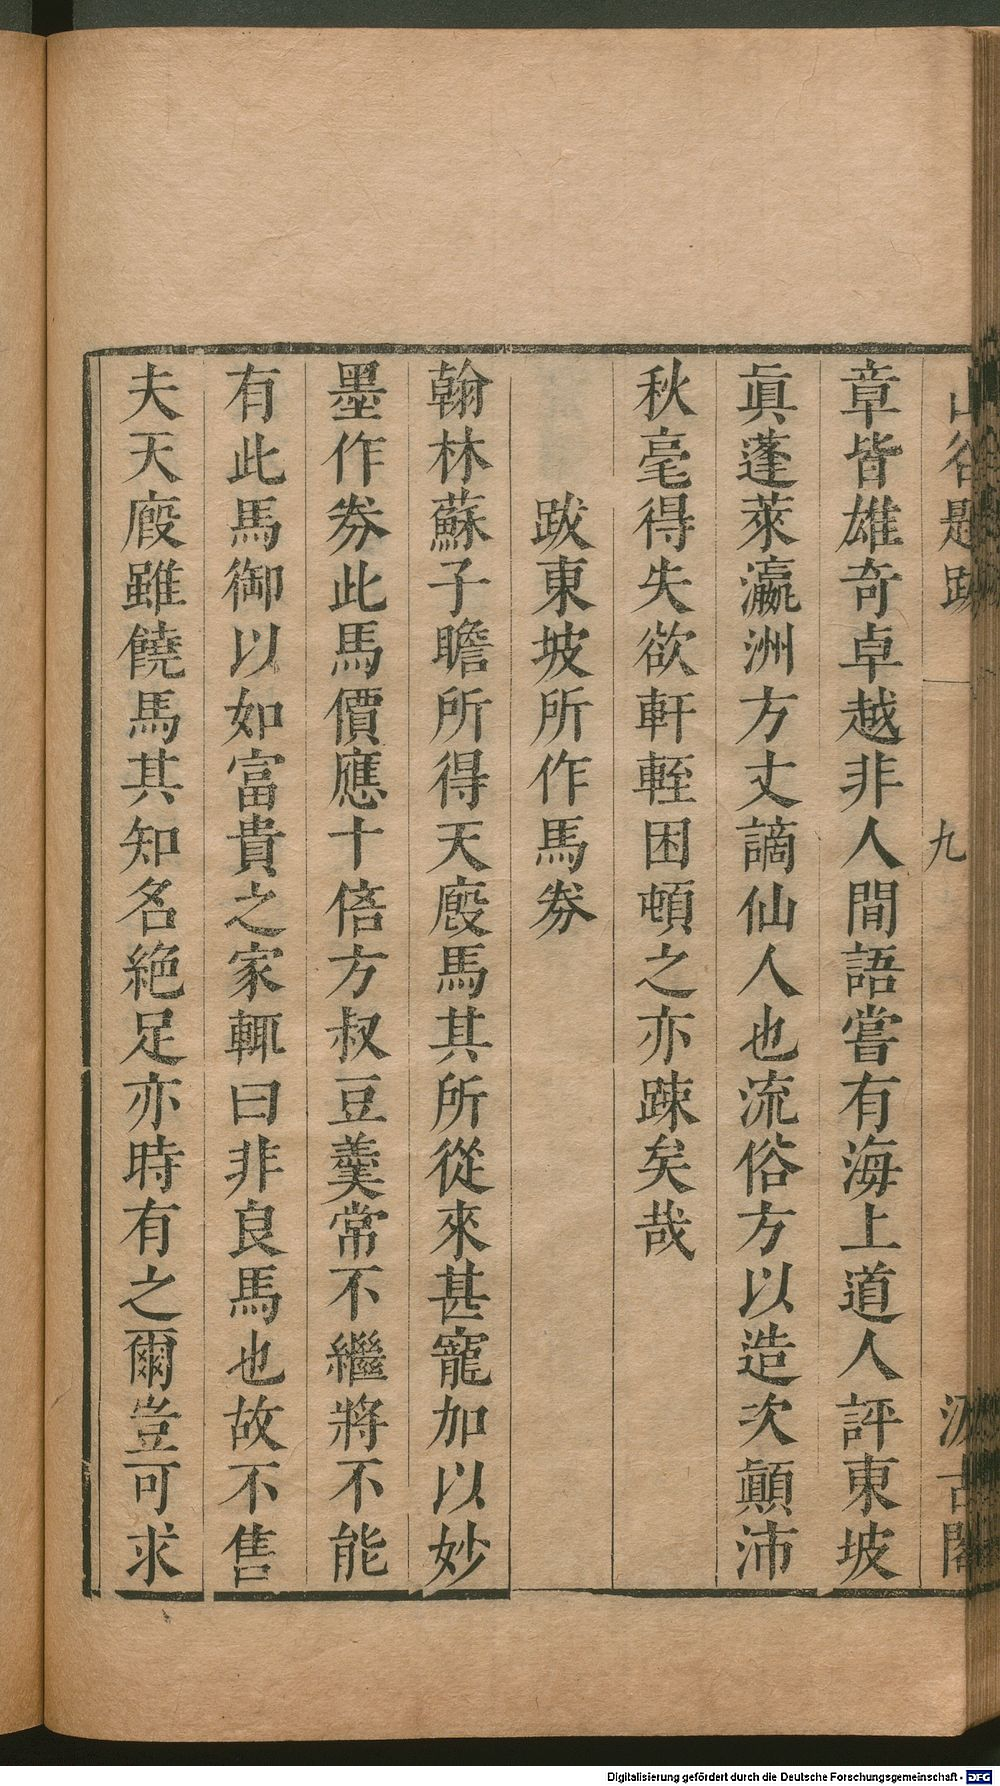 山谷題跋 九 汲古閣
章皆雄奇卓越非人間語嘗有海上道人評東坡
眞蓬萊瀛洲方丈謫仙人也流俗方以造次顚沛
秋毫得失欲軒輊困頓之亦踈矣哉
跋東坡所作馬劵
翰林蘇子瞻所得天廐馬其所從來甚寵加以妙
墨作劵此馬價應十倍方叔豆羹常不繼將不能
有此馬御以如富貴之家輒曰非良馬也故不售
夫天廐雖饒馬其知名絶足亦時有之爾豈可求
Digitalisierung gefördert durch die Deutsche Forschungsgemeinschaft - DFG